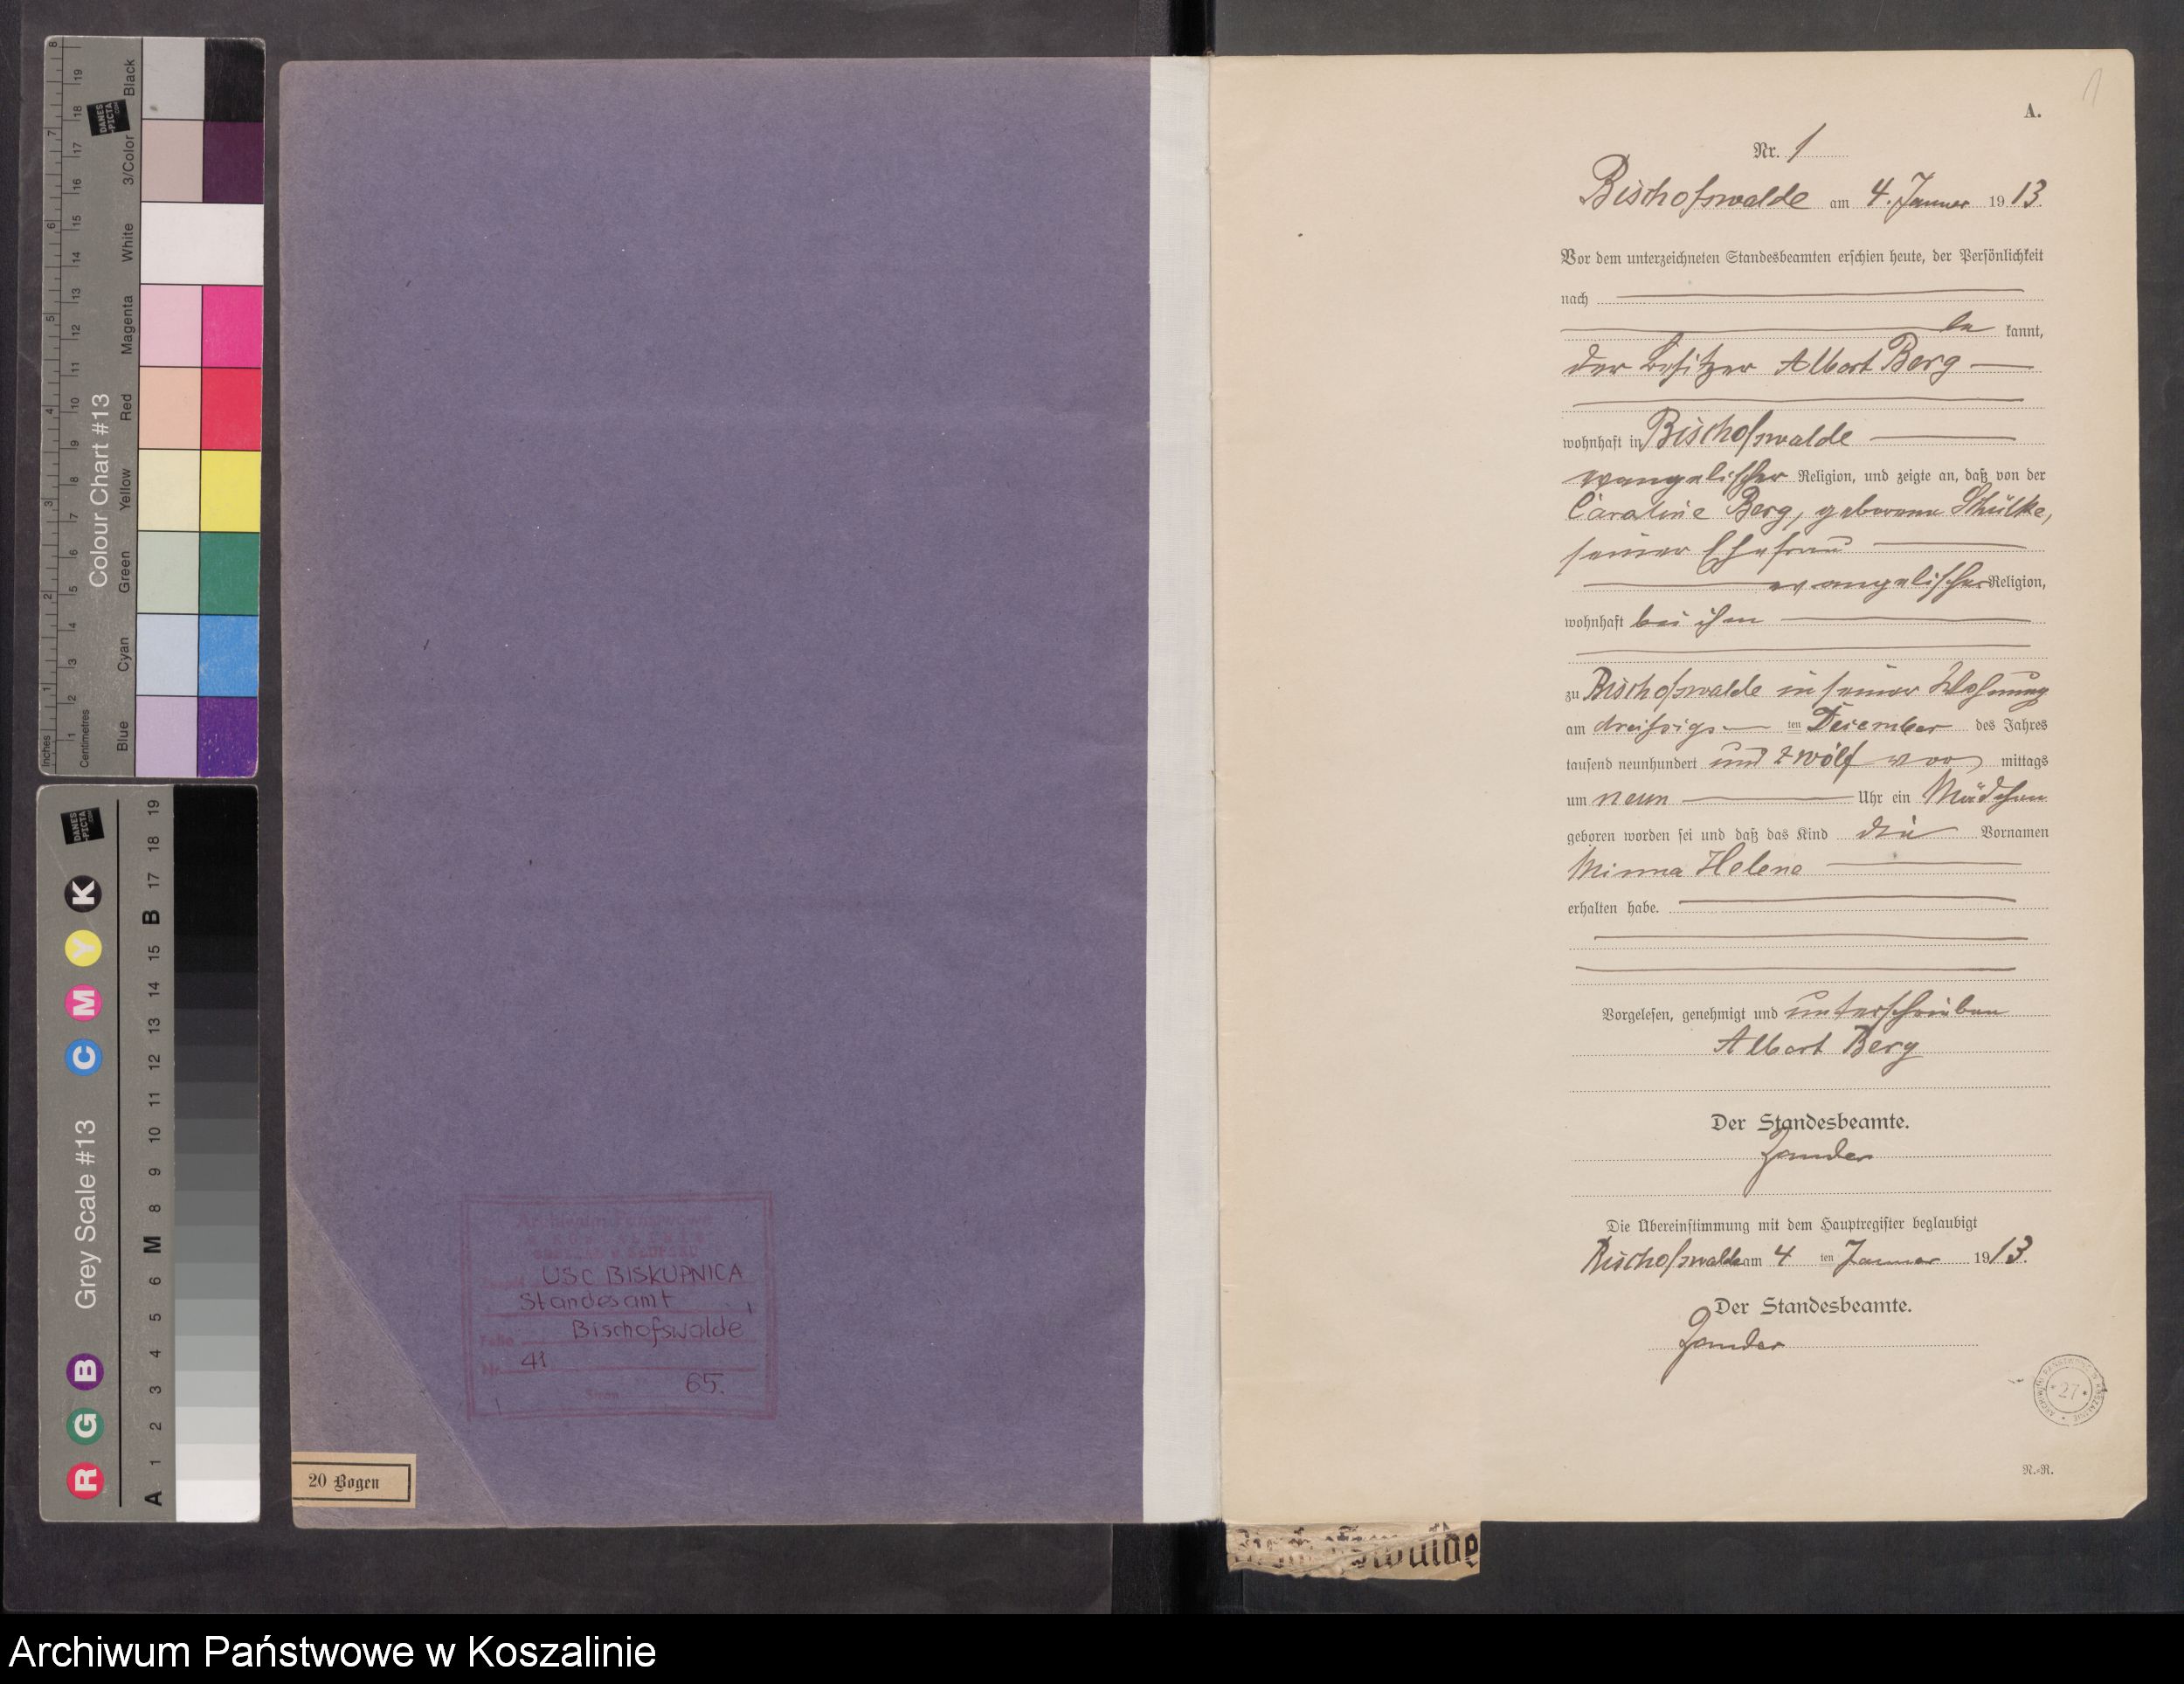 A.
Nr. 1
Bischofswalde am 4. Januar 1913.
Vor dem unterzeichneten Standesbeamten erschien heute, der Persönlichkeit
nach
be kannt,
der Besitzer Albert Berg
wohnhaft in Bischofswalde
evangelischer Religion, und zeigte an, daß von der
Caroline Berg, geborene Schülke,
seiner Ehefrau
evangelischer Religion,
wohnhaft bei ihm
zu Bischofswalde in seiner Wohnung
am dreißigs ten Dezember des Jahres
tausend neunhundert und zwölf vor mittags
um neun Uhr ein Mädchen
geboren worden sei und daß das Kind die Vornamen
Minna Helene
erhalten habe.
Vorgelesen, genehmigt und unterschrieben
Albert Berg
Der Standesbeamte.
Zander
Die Übereinstimmung mit dem Hauptregister beglaubigt
Bischofswalde am 4 ten Januar 1913.
Der Standesbeamte.
Zander
27
R.=R.
Archiwum Państwowe
USC BISKUPNICA
Standesamt
Bischofswalde
Nr. 41
Stron 65.
20 Bogen
Colour Chart #13
Black
3/Color
White
Magenta
Red
Yellow
Green
Cyan
Blue
Inches
Centimetres
DANES
-PICTA
.COM
Grey Scale #13
R G B C M Y K
A 1 2 3 4 5 6 M 8 9 10 11 12 13 14 15 B 17 18 19
Archiwum Państwowe w Koszalinie